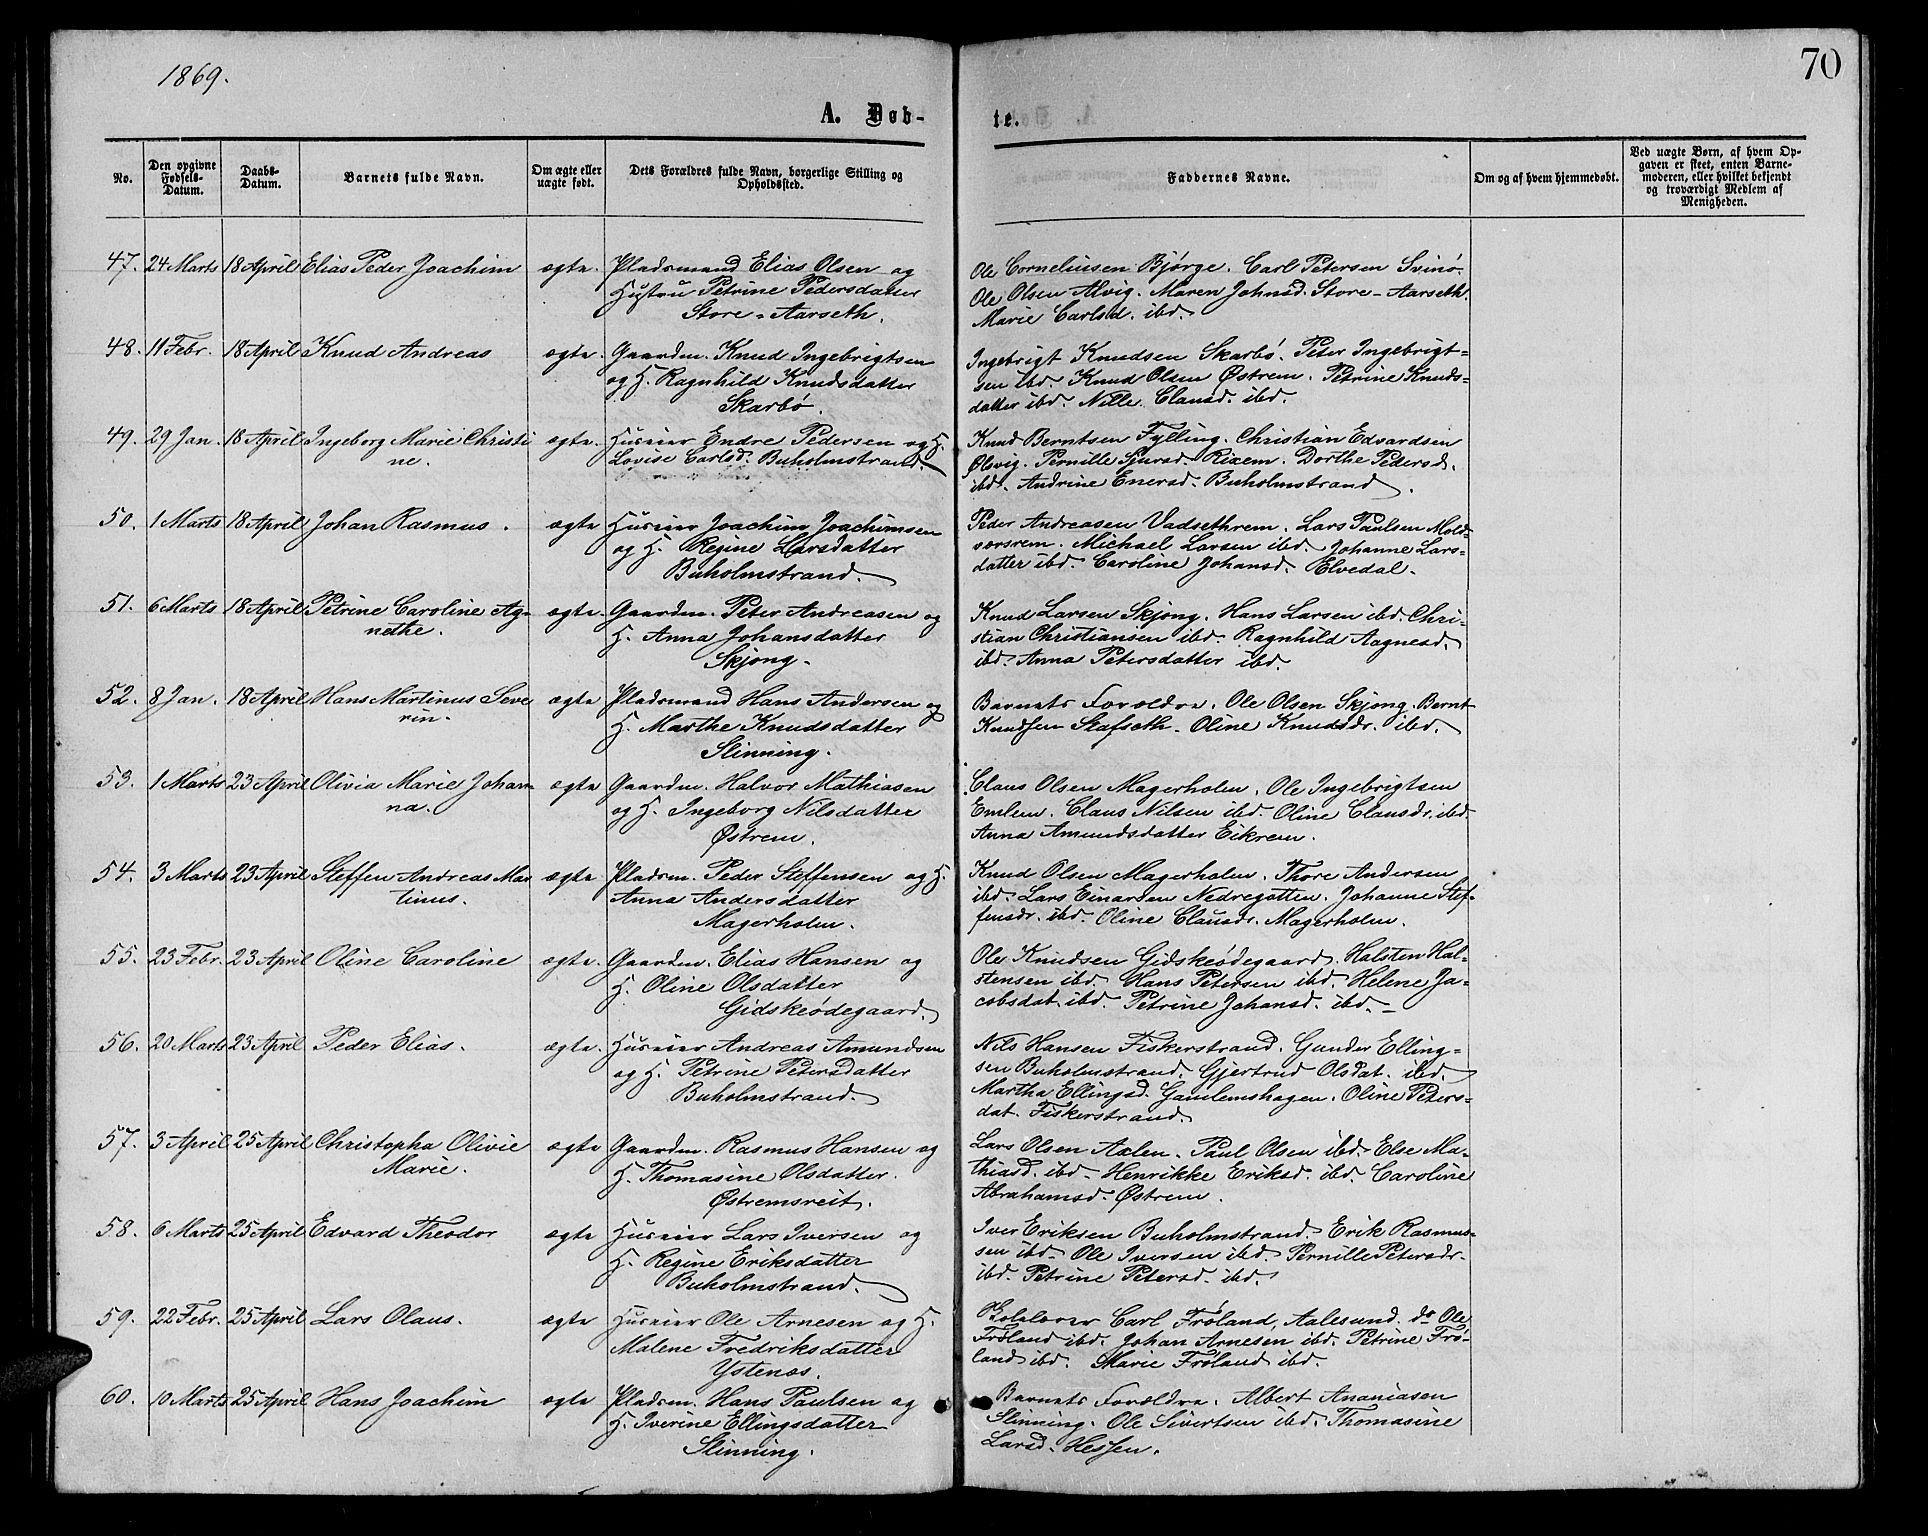 1869.
70
A. Døb-
te.
No.
Den opgivne Fødsels-Datum.
Daabs-Datum.
Barnets fulde Navn.
Om ægte eller uægte født.
Dets Forældres fulde Navn, borgerlige Stilling og Opholdssted.
Faddernes Navne.
Om og af hvem hjemmedøbt.
Ved uægte Børn, af hvem Op-
gaven er skeet, enten Barne-
moderen, eller hvilket bekjendt
og troværdigt Medlem af
Menigheden.
47. 24 Marts 18 April Elias Peder Joachim ægte. Pladsmand Elias Olsen og
Hustru Petrine Pedersdatter
Store-Aarseth.
Ole Corneliusen Bjørge. Carl Petersen Svinø.
Ole Olsen Alvig. Maren Johnsd. Store-Aarseth.
Marie Carlsd. ibd.
48. 11 Febr. 18 April Knud Andreas ægte. Gaardm. Knud Ingebrigtsen
og H. Ragnhild Knudsdatter
Skarbø.
Ingebrigt Knudsen Skarbø. Peter Ingebrigt=
sen ibd. Knud Olsen Østrem. Petrine Knuds=
datter ibd. Nille Clausd. ibd.
49. 29 Jan. 18 April Ingeborg Marie Christi ægte. Huseier Endre Pedersen og H.
ne. Lovise Carlsd. Buholmstrand.
Knud Berntsen Fylling. Christian Edvardsen
Ølsvig. Pernille Sjursd. Rixem. Dorthe Pedersd.
ibd. Andrine Enersd. Buholmstrand.
50. 1 Marts 18 April Johan Rasmus. ægte Huseier Joachim Joachimsen
og H. Regine Larsdatter
Buholmstrand.
Peder Andreasen Vadsethrem. Lars Paulsen Mold=
værsrem. Michael Larsen ibd. Johanne Lars=
datter ibd. Caroline Johansd. Elvedal.
51. 6 Marts 18 April Petrine Caroline Ag= ægte. Gaardm. Peter Andreasen og
nethe. H. Anna Johansdatter
Skjong.
Knud Larsen Skjong. Hans Larsen ibd. Chri=
stian Christiansen ibd. Ragnhild Aagnesd.
ibd. Anna Petersdatter ibd.
52. 8 Jan. 18 April Hans Martinus Seve ægte Pladsmand Hans Andersen og
rin. H. Marthe Knudsdatter
Slinning.
Barnets Forældre. Ole Olsen Skjong. Bernt
Knudsen Stafseth. Oline Knudsdr. ibd.
53. 1 Marts 23 April Olivia Marie Johan= ægte Gaardm. Halvor Mathiasen
na. og H. Ingeborg Nilsdatter
Østrem.
Claus Olsen Magerholm. Ole Ingebrigtsen
Emlem. Claus Nilsen ibd. Oline Clausdr. ibd.
Anna Amundsdatter Eikrem.
54. 3 Marts 23 April Steffen Andreas Mar ægte Pladsm. Peder Steffensen og H.
tinus. Anna Andersdatter
Magerholm.
Knud Olsen Magerholm. Thore Andersen
ibd. Lars Einarsen Nedregotten. Johanne Stef=
fensdr. ibd. Oline Clausdr. Magerholm.
55. 23 Febr. 23 April Oline Caroline ægte. Gaardm. Elias Hansen og
H. Oline Olsdatter
Gidskeødegaard.
Ole Knudsen Gidskeødegaard. Halsten Hal=
stensen ibd. Hans Petersen ibd. Helene Ja=
cobsdat. ibd. Petrine Johansd. ibd.
56. 20 Marts 23 April Peder Elias. ægte. Huseier Andreas Amundsen
og H. Petrine Petersdatter
Buholmstrand.
Nils Hansen Fiskerstrand. Gunder Elling=
sen Buholmstrand. Gjertrud Olsdat. ibd.
Martha Ellingsd. Gamlemshagen. Oline Peters=
dat. Fiskerstrand.
57. 3 April 25 April Christopha Olivie ægte Gaardm. Rasmus Hansen og
Marie. H. Thomasine Olsdatter.
Østremsreit.
Lars Olsen Axlen. Paul Olsen ibd. Else Ma=
thiasd. ibd. Henrikke Eriksd. ibd. Caroline
Abrahamsd. Østrem.
58. 6 Marts 25 April Edvard Theodor ægte Huseier Lars Iversen og
H. Regine Eriksdatter
Buholmstrand.
Iver Eriksen Buholmstrand. Erik Rasmus=
sen ibd. Ole Iversen ibd. Pernille Petersdr.
ibd. Petrine Petersd. ibd.
59. 22 Febr. 25 April Lars Olaus. ægte Huseier Ole Arnesen og H.
Malene Fredriksdatter
Ystenæs.
Carl Frøland, Aalesund. do Ole
Frøland ibd. Johan Arnesen ibd. Petrine Frø=
land ibd. Marie Frøland ibd.
60. 10 Marts 25 April Hans Joachim ægte Pladsm. Hans Paulsen og
H. Iverine Ellingsdatter
Slinning.
Barnets Forældre. Albert Ananiasen
Slinning. Ole Sivertsen ibd. Thomasine
Larsd. Hessen.